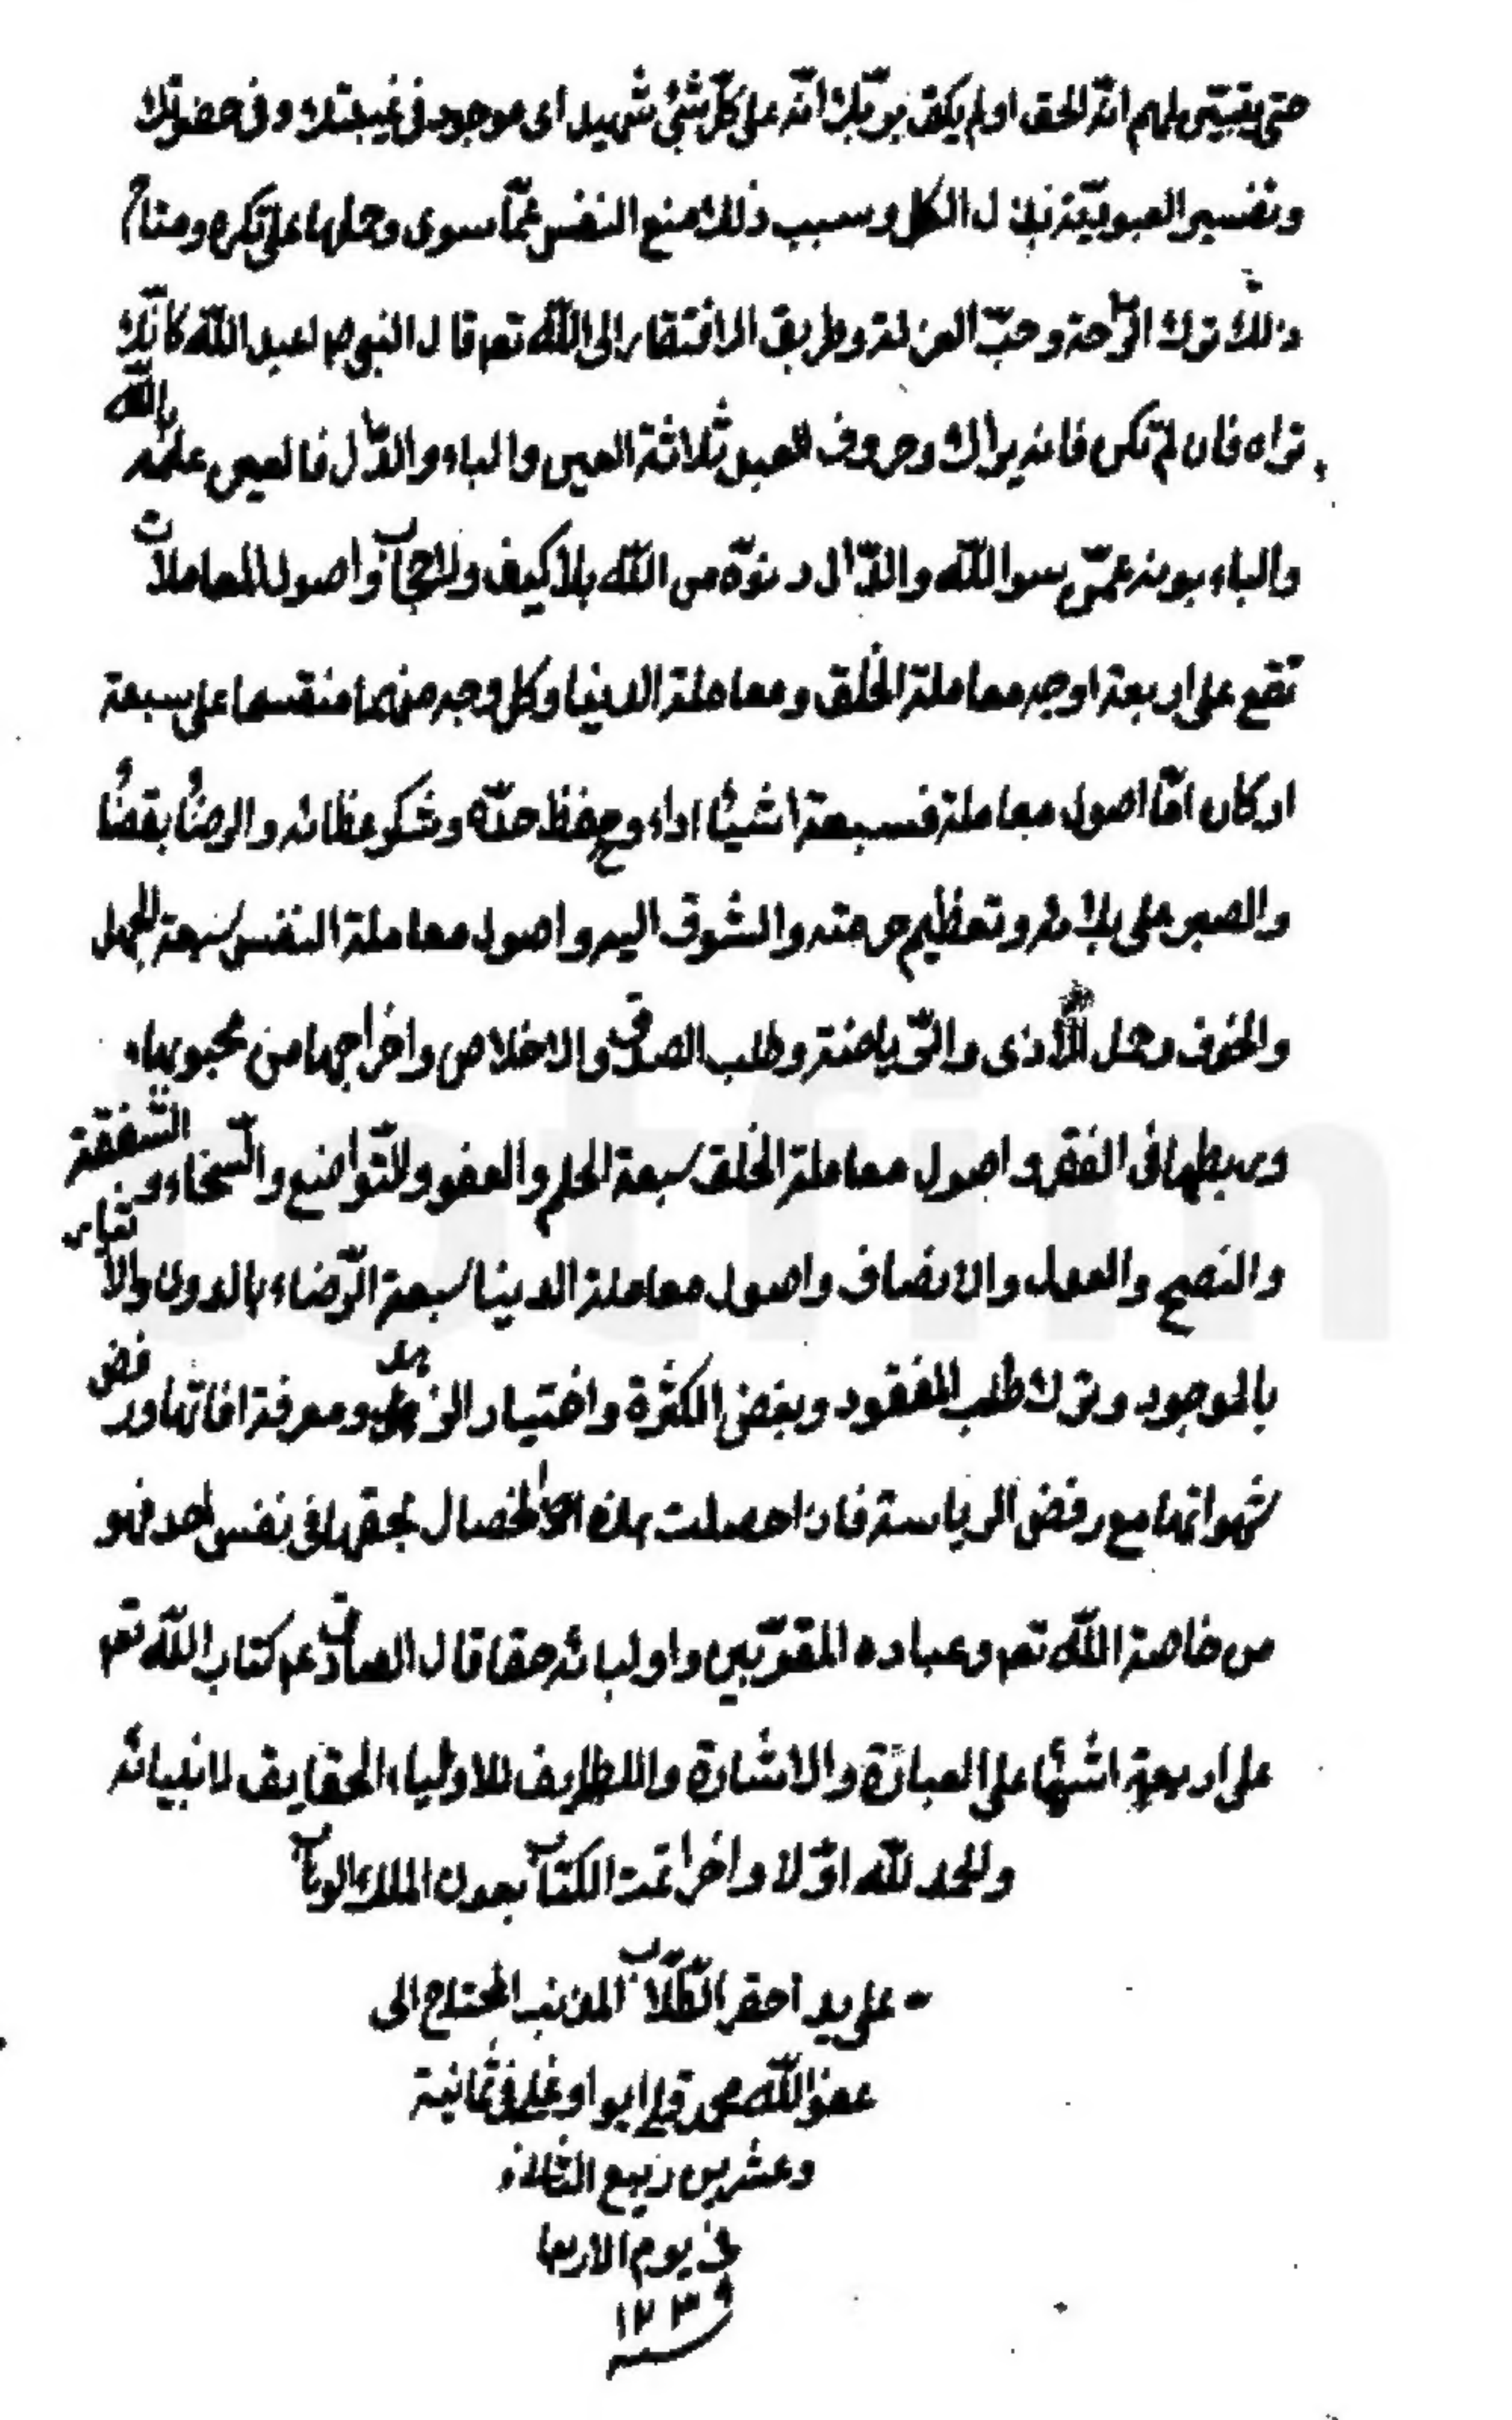 حتى يتبين لهم انّه الحق اولم يكف بربّك انّه على كلّ شئ شهيد اى موجود فى غيبتك وفى حضرتك
وتفسير العبوديّة بذل الكل وسبب ذلك منع النفس عمّا سوى وحملها على تكره ومفتاح
ذلك ترك الرّاحة وحبّ العزلة وطريق الافتقار الى اللّه تعم قال النبى ص اعبد اللّه كانّك
تراه فان لم تكن فانه يراك وحروف العبد ثلاثة العين والباء والدّال فالعين علمه باللّه
والباء بونه عمّن سوا اللّه والدّال دنوّه من اللّه بلا كيف ولا حجاب واصول المعاملات
تقع على اربعة اوجه معاملة الخلق ومعاملة الدنيا وكل وجه منها منقسما على سبعة
اركان امّا اصول معاملة فسبعة اشياء اداء وحفظ حدّه وشكر عطائه والرضاء بقضاء
والصبر على بلائه وتعظيم حرمته والشوق اليه واصول معاملة النفس سبعة الجهل
والخوف وحمل الاذى والرّياضة وطلب الصدق والاخلاص واخراجها من محبوبها
وربطها فى الفقر واصول معاملة الخلق سبعة الحلم والعفو والتّواضع والسّخاء والشّفقة
والنصح والعدل والانصاف واصول معاملة الدنيا سبعة الرّضاء بالدون والايثار
بالموجود وترك طلب المفقود وبغض الكثرة واختيار الزهد ومعرفة افاتها ورفض
شهواتها مع رفض الرياسة فاذا حصلت هذه الخصال بحقها فى نفس احد فهو
من خاصة اللّه تعم وعباده المقرّبين واوليائه حقا قال الصادق عم كتاب اللّه تعم
على اربعة اشياء على العبارة والاشارة واللطايف للاولياء الحقايق لانبيائه
والحمد للّه اوّلا واخرا تمت الكتاب بعون الملك الوهاب
على يد احقر الكلّاب المذنب المحتاج الى
عفو اللّه محمد فى ثمانية
وعشرين ربيع
فى يوم الاربعا
١٢٣٩